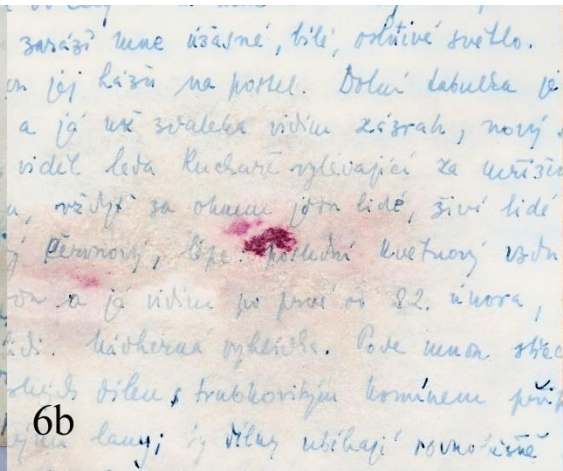 zarází mne úžasné, bílé, oslnivé světlo.
jej házím na postel. Dolní tabulka je
a já už zdaleka vidím zázrak, nový
viděl leda kuchaře vylévající za mřížem
vždyť za oknem jsou lidé, živí lidé
červnový, lépe poslední květnový vzdu
a já vidím po prvé od 22. února,
lidi. Nádherná vyhlídka. Pode mnou střec
dílen s trubkovitým komínem
lany; ty dílny ubíhají rovnoběžně
6b